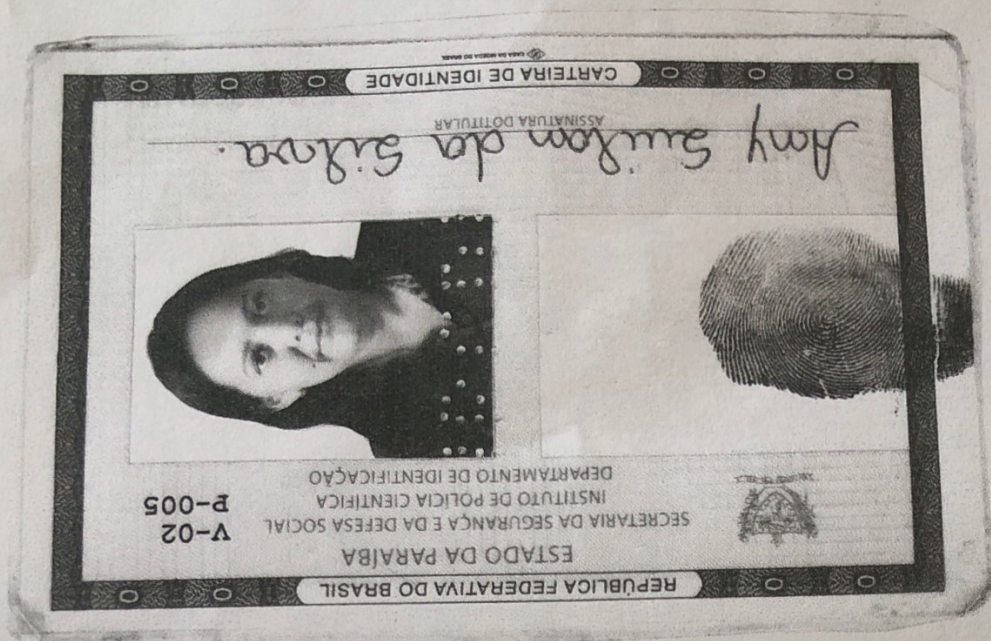 REPÚBLICA FEDERATIVA DO BRASIL
ESTADO DA PARAÍBA
SECRETARIA DA SEGURANÇA E DA DEFESA SOCIAL
INSTITUTO DE POLÍCIA CIENTÍFICA
DEPARTAMENTO DE IDENTIFICAÇÃO
V-02
P-005
Any Suilan da Silva.
ASSINATURA DO TITULAR
CARTEIRA DE IDENTIDADE
CASA DA MOEDA DO BRASIL